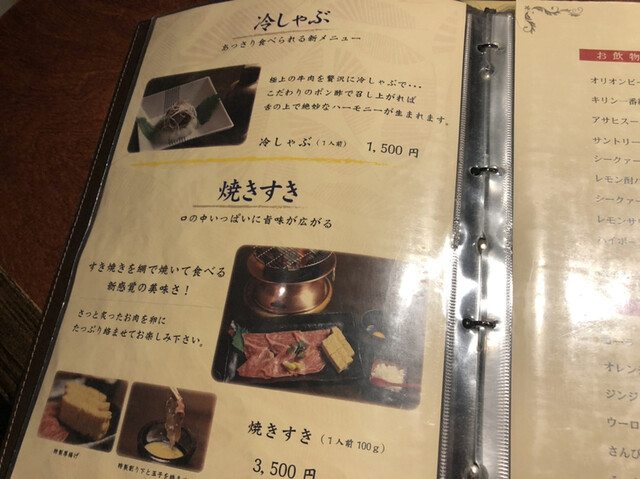 冷しゃぶ
あっさり食べられる新メニュー
極上の牛肉を贅沢に冷しゃぶで・・・
こだわりのポン酢で召し上がれば
舌の上で絶妙なハーモニーが生まれます。
冷しゃぶ(1人前) 1,500円
焼きすき
口の中いっぱいに旨味が広がる
すき焼きを網で焼いて食べる
新感覚の美味さ!
さっと炙ったお肉を卵に
たっぷり絡ませてお楽しみ下さい。
特製厚揚げ
特製割り下と玉子を
焼きすき(1人前100g)
3,500円
お飲物
オリオンビー
キリン一番
アサヒスー
サントリー
シークァー
レモン酎ハ
シークァー
レモンサ
ハイボー
オレン
ジンジ
ウーロ
さんぴ